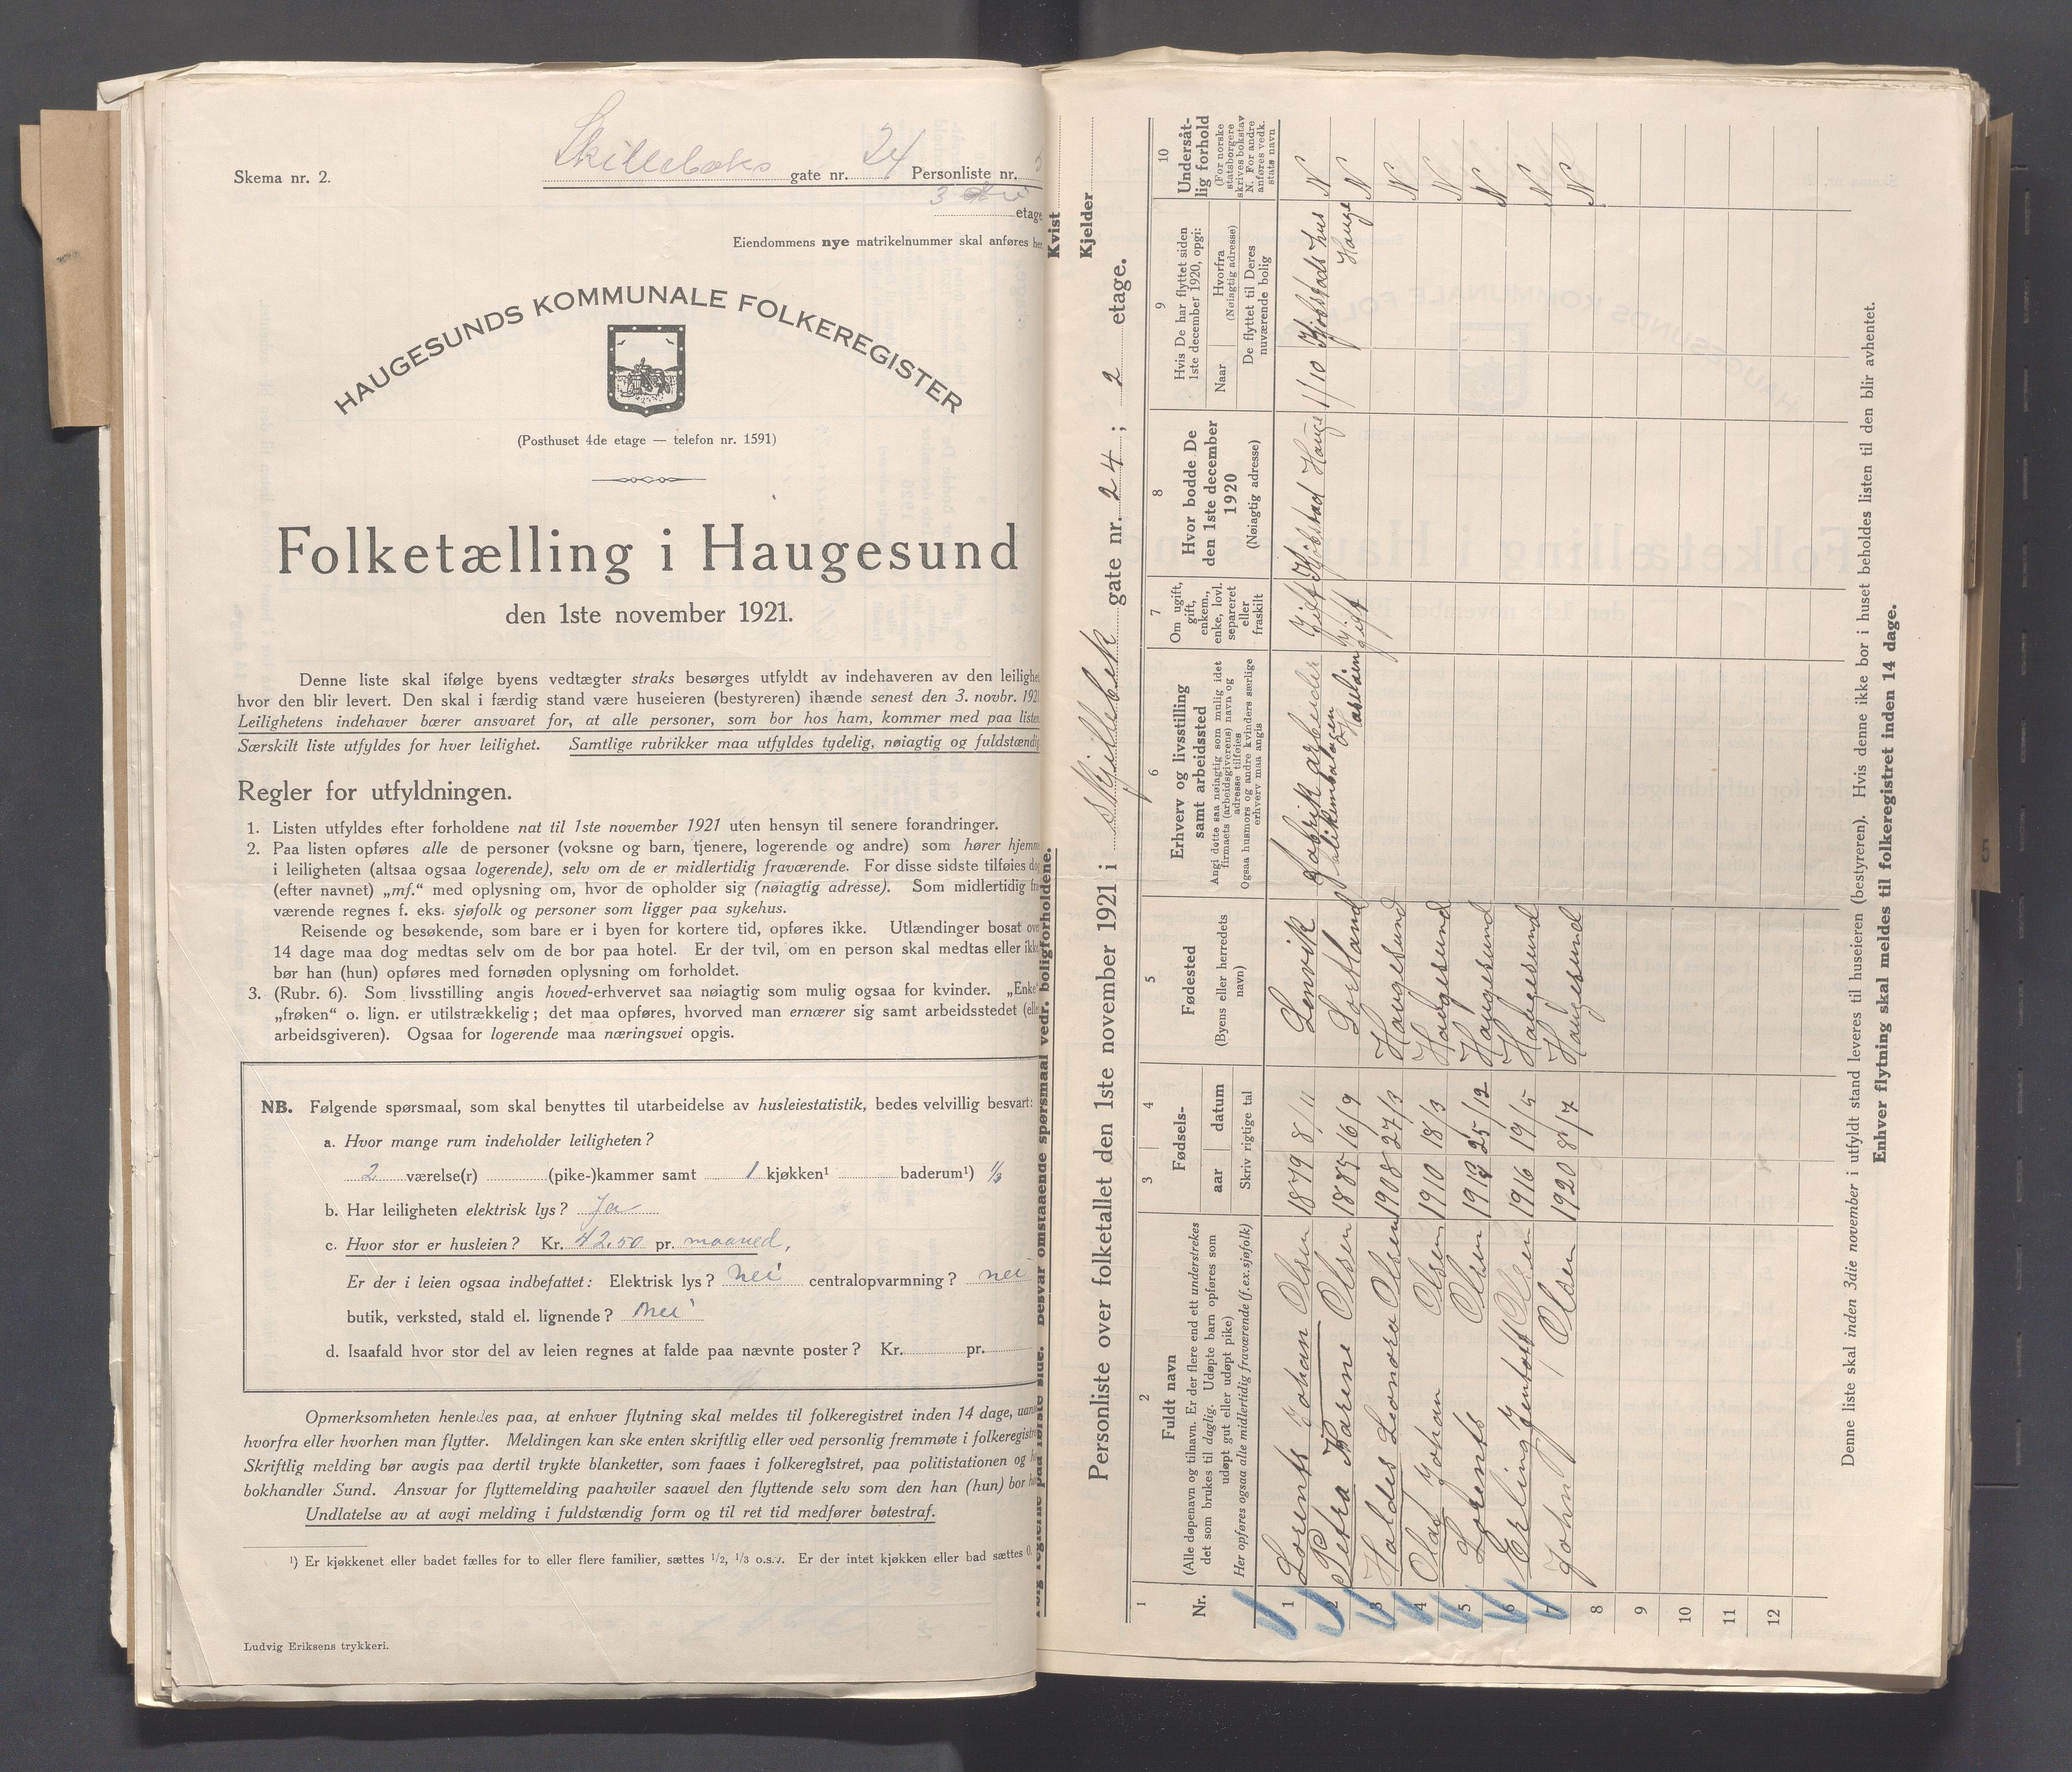 Skema nr. 2.
Skillebæks gate nr. 24 Personliste nr.
3 etage
Eiendommens nye matrikelnummer skal anføres her.
HAUGESUNDS KOMMUNALE FOLKEREGISTER
(Posthuset 4de etage — telefon nr. 1591)
Folketælling i Haugesund
den 1ste november 1921.
Denne liste skal ifølge byens vedtægter straks besørges utfyldt av indehaveren av den leilighet
hvor den blir levert. Den skal i færdig stand være huseieren (bestyreren) ihænde senest den 3. novbr. 1921
Leilighetens indehaver bærer ansvaret for, at alle personer, som bor hos ham, kommer med paa listen
Særskilt liste utfyldes for hver leilighet. Samtlige rubrikker maa utfyldes tydelig, nøiagtig og fuldstændig
Regler for utfyldningen.
1. Listen utfyldes efter forholdene nat til 1ste november 1921 uten hensyn til senere forandringer.
2. Paa listen opføres alle de personer (voksne og barn, tjenere, logerende og andre) som hører hjemme
i leiligheten (altsaa ogsaa logerende), selv om de er midlertidig fraværende. For disse sidste tilføies da
(efter navnet) „mf.“ med oplysning om, hvor de opholder sig (nøiagtig adresse). Som midlertidig fra
værende regnes f. eks. sjøfolk og personer som ligger paa sykehus.
Reisende og besøkende, som bare er i byen for kortere tid, opføres ikke. Utlændinger bosat over
14 dage maa dog medtas selv om de bor paa hotel. Er der tvil, om en person skal medtas eller ikke
bør han (hun) opføres med fornøden oplysning om forholdet.
3. (Rubr. 6). Som livsstilling angis hoved-erhvervet saa nøiagtig som mulig ogsaa for kvinder. „Enke“
„frøken“ o. lign. er utilstrækkelig; det maa opføres, hvorved man ernærer sig samt arbeidsstedet (eller
arbeidsgiveren). Ogsaa for logerende maa næringsvei opgis.
NB. Følgende spørsmaal, som skal benyttes til utarbeidelse av husleiestatistik, bedes velvillig besvart:
a. Hvor mange rum indeholder leiligheten?
2 værelse(r) (pike-)kammer samt 1 kjøkken¹ baderum¹) 1/3
b. Har leiligheten elektrisk lys? Ja
c. Hvor stor er husleien? Kr. 42.50 pr. maaned.
Er der i leien ogsaa indbefattet: Elektrisk lys? Nei centralopvarmning? nei
butik, verksted, stald el. lignende? Nei
d. Isaafald hvor stor del av leien regnes at falde paa nævnte poster? Kr. pr.
Opmerksomheten henledes paa, at enhver flytning skal meldes til folkeregistret inden 14 dage, uanset
hvorfra eller hvorhen man flytter. Meldingen kan ske enten skriftlig eller ved personlig fremmøte i folkeregistret
Skriftlig melding bør avgis paa dertil trykte blanketter, som faaes i folkeregistret, paa politistationen og hos
bokhandler Sund. Ansvar for flyttemelding paahviler saavel den flyttende selv som den han (hun) bor hos
Undlatelse av at avgi melding i fuldstændig form og til ret tid medfører bøtestraf.
¹) Er kjøkkenet eller badet fælles for to eller flere familier, sættes 1/2, 1/3 o.s.v. Er der intet kjøkken eller bad sættes 0.
Ludvig Eriksens trykkeri.
Følg reglerne paa første side. Besvar omstaaende spørsmaal vedr. boligforholdene.
Kvist
Kjelder
Personliste over folketallet den 1ste november 1921 i Skjillebek gate nr. 24; 2 etage.
1 2 3 4 5 6 7 8 9 10
Nr.
Fuldt navn
(Alle døpenavn og tilnavn. Er der flere end ett understrekes
det som brukes til daglig. Udøpte barn opføres som
udøpt gut eller udøpt pike)
Her opføres ogsaa alle midlertidig fraværende (f. ex. sjøfolk)
Fødsels-
aar datum
Skriv rigtige tal
Fødested
(Byens eller herredets
navn)
Erhverv og livsstilling
samt arbeidssted
Angi dette saa nøiagtig som mulig idet
firmaets (arbeidsgiverens) navn og
adresse tilføies
Ogsaa husmors og andre kvinders særlige
erhverv maa angis
Om ugift,
gift,
enkem.,
enke, lovl.
separeret
eller
fraskilt
Hvor bodde De
den 1ste december
1920
(Nøiagtig adresse)
Hvis De har flyttet siden
1ste december 1920, opgi:
Naar
Hvorfra
(Nøiagtig adresse)
De flyttet til Deres
nuværende bolig
Undersåt-
lig forhold
(For norske
statsborgere
skrives bokstav
N. For andre
anføres vedk.
stats navn
1 Lorents Johan Olsen 1879 8/11 Lenvik Fabrik arbeider Gift Kjølstad Hauge 1/10 Kjølstads hus N
2 Petra Karene Olsen 1885 16/9 Sortland gift Hauge N
3 Haldis Leonora Olsen 1908 27/3 Haugesund N
4 Olaf Johan Olsen 1910 18/3 Haugesund N
5 Lorents Olsen 1913 25/12 Haugesund N
6 Erling Olsen 1916 19/5 Haugesund N
7 John Olsen 1920 8/7 Haugesund N
8
9
10
11
12
Denne liste skal inden 3die november i utfyldt stand leveres til huseieren (bestyreren). Hvis denne ikke bor i huset beholdes listen til den blir avhentet.
Enhver flytning skal meldes til folkeregistret inden 14 dage.